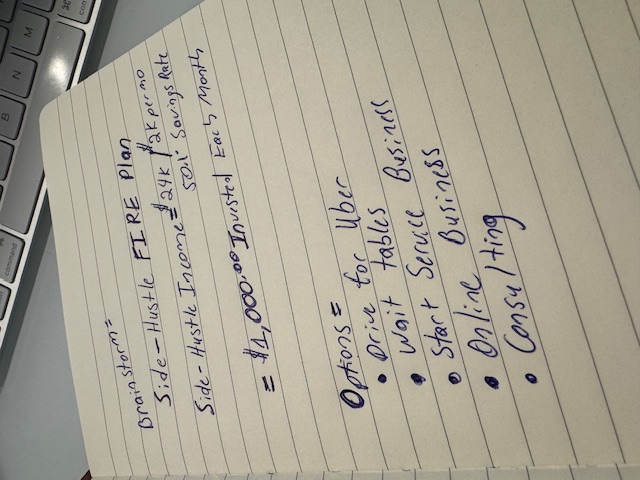 command
B
N
M
⌘
Brainstorm=
Side-Hustle FIRE Plan
Side-Hustle Income= $24K / $2K per mo
50% Savings Rate
= $1,000.00 Invested Each Month
Options=
• Drive for Uber
• Wait tables
• Start Service Business
• Online Business
• Consulting